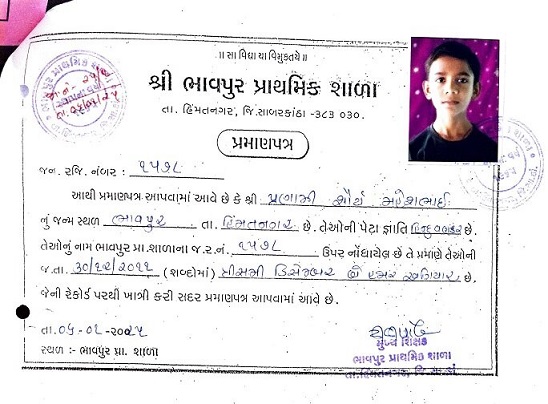 ॥ सा विद्या या विमुक्तये ॥
શ્રી ભાવપુર પ્રાથમિક શાળા
તા. હિંમતનગર, જિ.સાબરકાંઠા -૩૮૩ ૦૩૦.
પ્રમાણપત્ર
જન. રજિ. નંબર : ૧૫૭૮
આથી પ્રમાણપત્ર આપવામાં આવે છે કે શ્રી પ્રણામી શૌર્ય મહેશભાઈ
નું જન્મ સ્થળ ભાવપુર તા. હિંમતનગર છે. તેઓની પેટા જ્ઞાતિ છે.
તેઓનું નામ ભાવપુર પ્રા.શાળાના જ.ર.નં. ૧૫૭૮ ઉપર નોંધાયેલ છે તે પ્રમાણે તેઓની
જ.તા. ૩૦/૧૨/૨૦૧૧ (શબ્દોમાં) ત્રીસમી ડિસેમ્બર બે હજાર અગિયાર છે.
જેની રેકોર્ડ પરથી ખાત્રી કરી સદર પ્રમાણપત્ર આપવામાં આવે છે.
તા.
સ્થળ :- ભાવપુર પ્રા. શાળા
મુખ્ય શિક્ષક
ભાવપુર પ્રાથમિક શાળા
તા.હિંમતનગર, જિ.